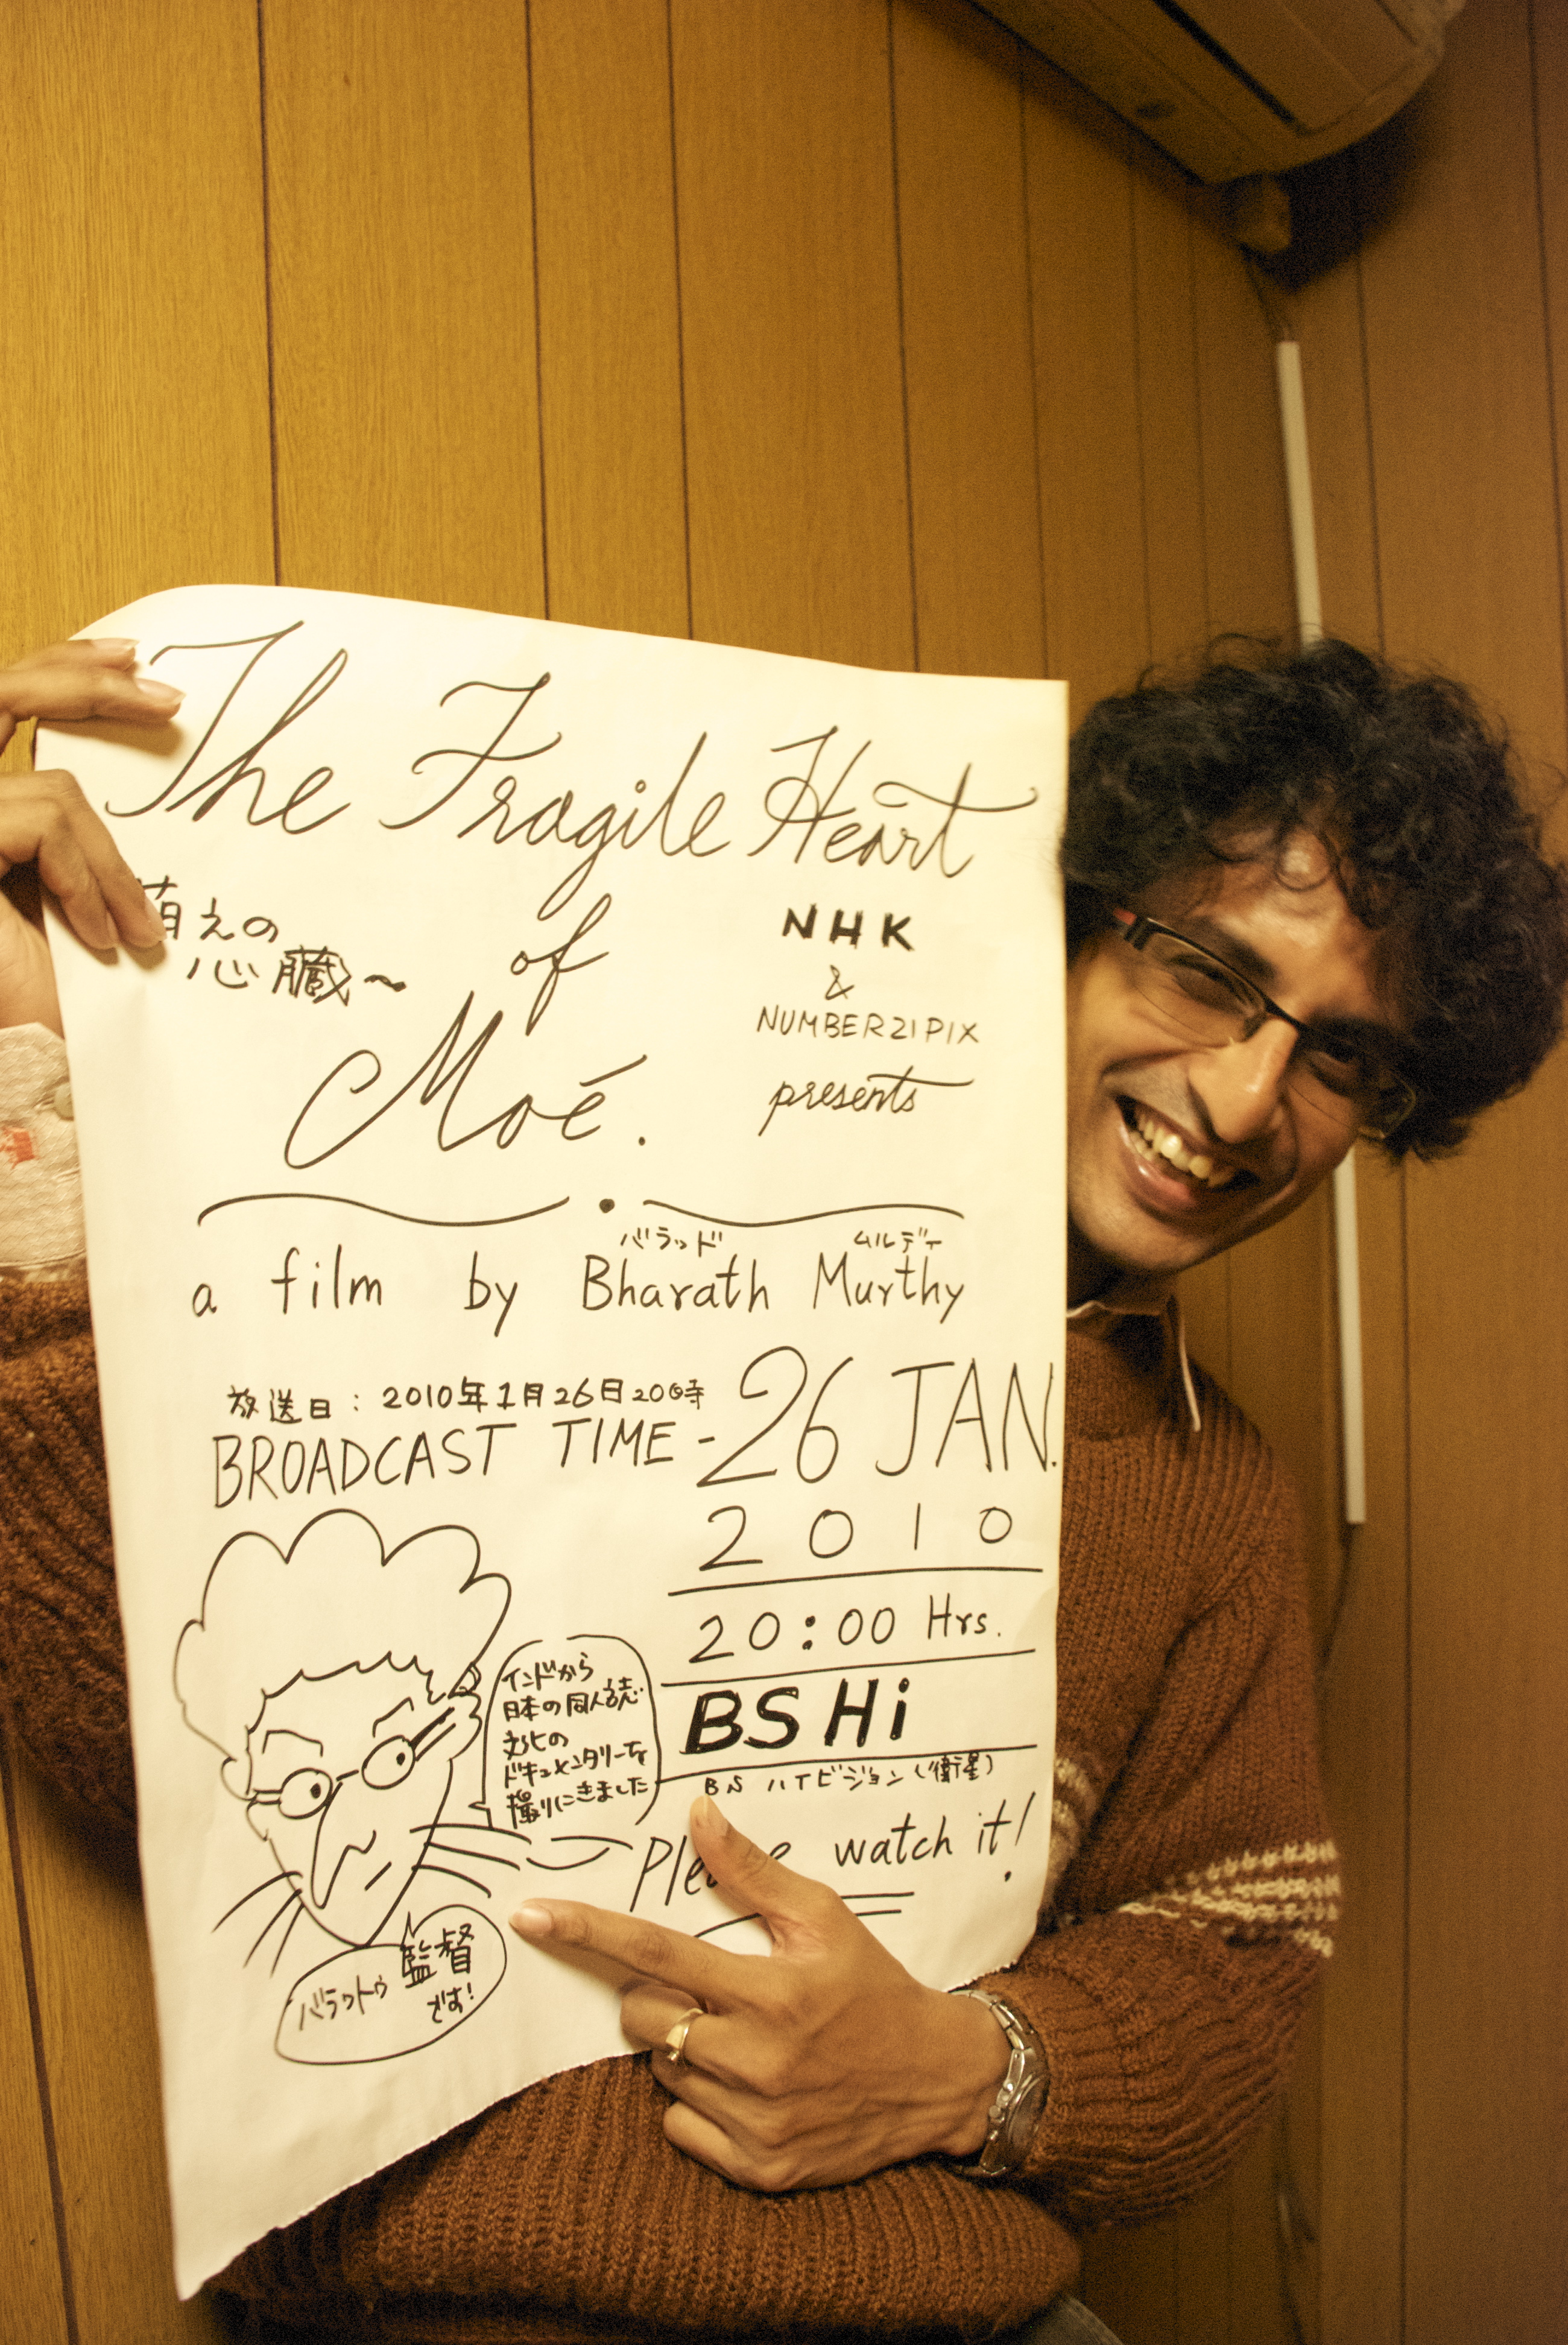 The Fragile Heart
萌えの
心臓〜
of
Moé.
NHK
&
NUMBER21PIX
presents
バラッド ムルデー
a film by Bharath Murthy
放送日:2010年1月26日20時
BROADCAST TIME - 26 JAN.
2010
20:00 Hrs.
BS Hi
BS ハイビジョン(衛星)
インドから
日本の同人誌
文化の
ドキュメンタリーを
撮りにきました
Please watch it!
バラットゥ 監督
です!